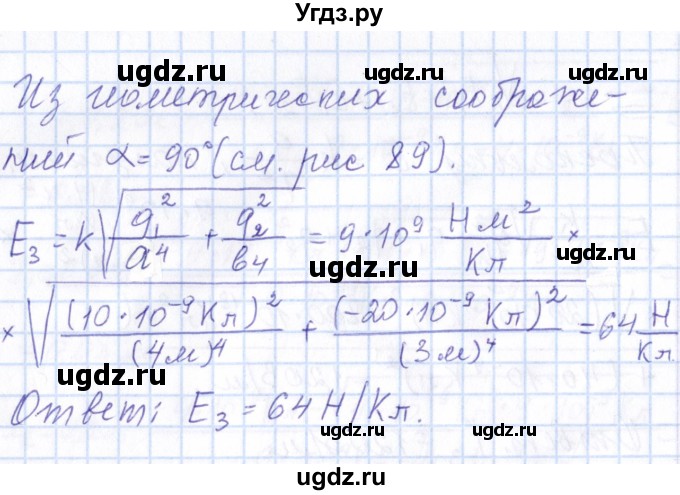 Угдз.ру
ugdz.ru
ugdz.ru ugdz.ru
Из геометрических соображе-
ний α = 90° (см. рис 89).
ugdz.ru ugdz.ru
E₃ = k√(q₁²/a⁴ + q₂²/b⁴) = 9·10⁹ Нм²/Кл ×
ugdz.ru ugdz.ru
× √((10·10⁻⁹Кл)²/(4м)⁴ + (-20·10⁻⁹Кл)²/(3м)⁴) = 64 Н/Кл.
ugdz.ru ugdz.ru
Ответ: E₃ = 64 Н/Кл.
ugdz.ru ugdz.ru
ugdz.ru